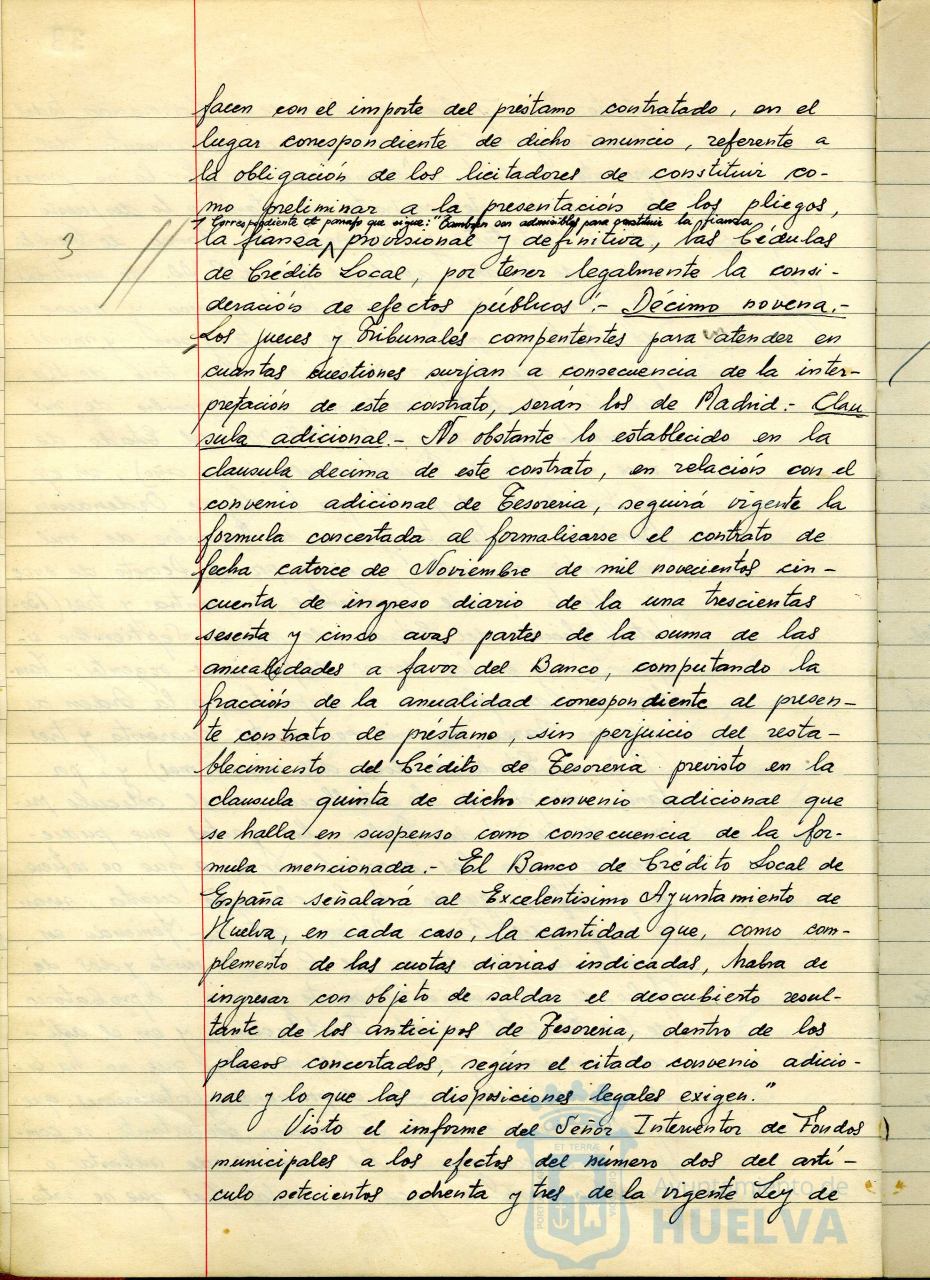 facen con el importe del préstamo contratado, en el
lugar correspondiente de dicho anuncio, referente a
la obligación de los licitadores de constituir co-
mo preliminar a la presentación de los pliegos,
correspondiente el parrafo que sigue: "Tambien son admisibles para constituir la fianza
3 la fianza provisional y definitiva, las Cédulas
de Crédito Local, por tener legalmente la consi-
deración de efectos públicos".- Décimo novena.-
Los jueces y Tribunales compententes para atender en
cuantas cuestiones surjan a consecuencia de la inter-
pretación de este contrato, serán los de Madrid.- Clau
sula adicional.- No obstante lo establecido en la
clausula decima de este contrato, en relación con el
convenio adicional de Tesoreria, seguirá vigente la
formula concertada al formalizarse el contrato de
fecha catorce de Noviembre de mil novecientos cin-
cuenta de ingreso diario de la una trescientas
sesenta y cinco avas partes de la suma de las
anualidades a favor del Banco, computando la
fracción de la anualidad correspondiente al presen-
te contrato de préstamo, sin perjuicio del resta-
blecimiento del Crédito de Tesoreria previsto en la
clausula quinta de dicho convenio adicional que
se halla en suspenso como consecuencia de la for-
mula mencionada.- El Banco de Crédito Local de
España señalará al Excelentisimo Ayuntamiento de
Huelva, en cada caso, la cantidad que, como com-
plemento de las cuotas diarias indicadas, habra de
ingresar con objeto de saldar el descubierto resul-
tante de los anticipos de Tesoreria, dentro de los
plazos concertados, según el citado convenio adicio-
nal y lo que las disposiciones legales exigen."
Visto el imforme del Señor Interventor de Fondos
municipales a los efectos del número dos del artí-
culo setecientos ochenta y tres de la vigente Ley de
Ayuntamiento de
HUELVA